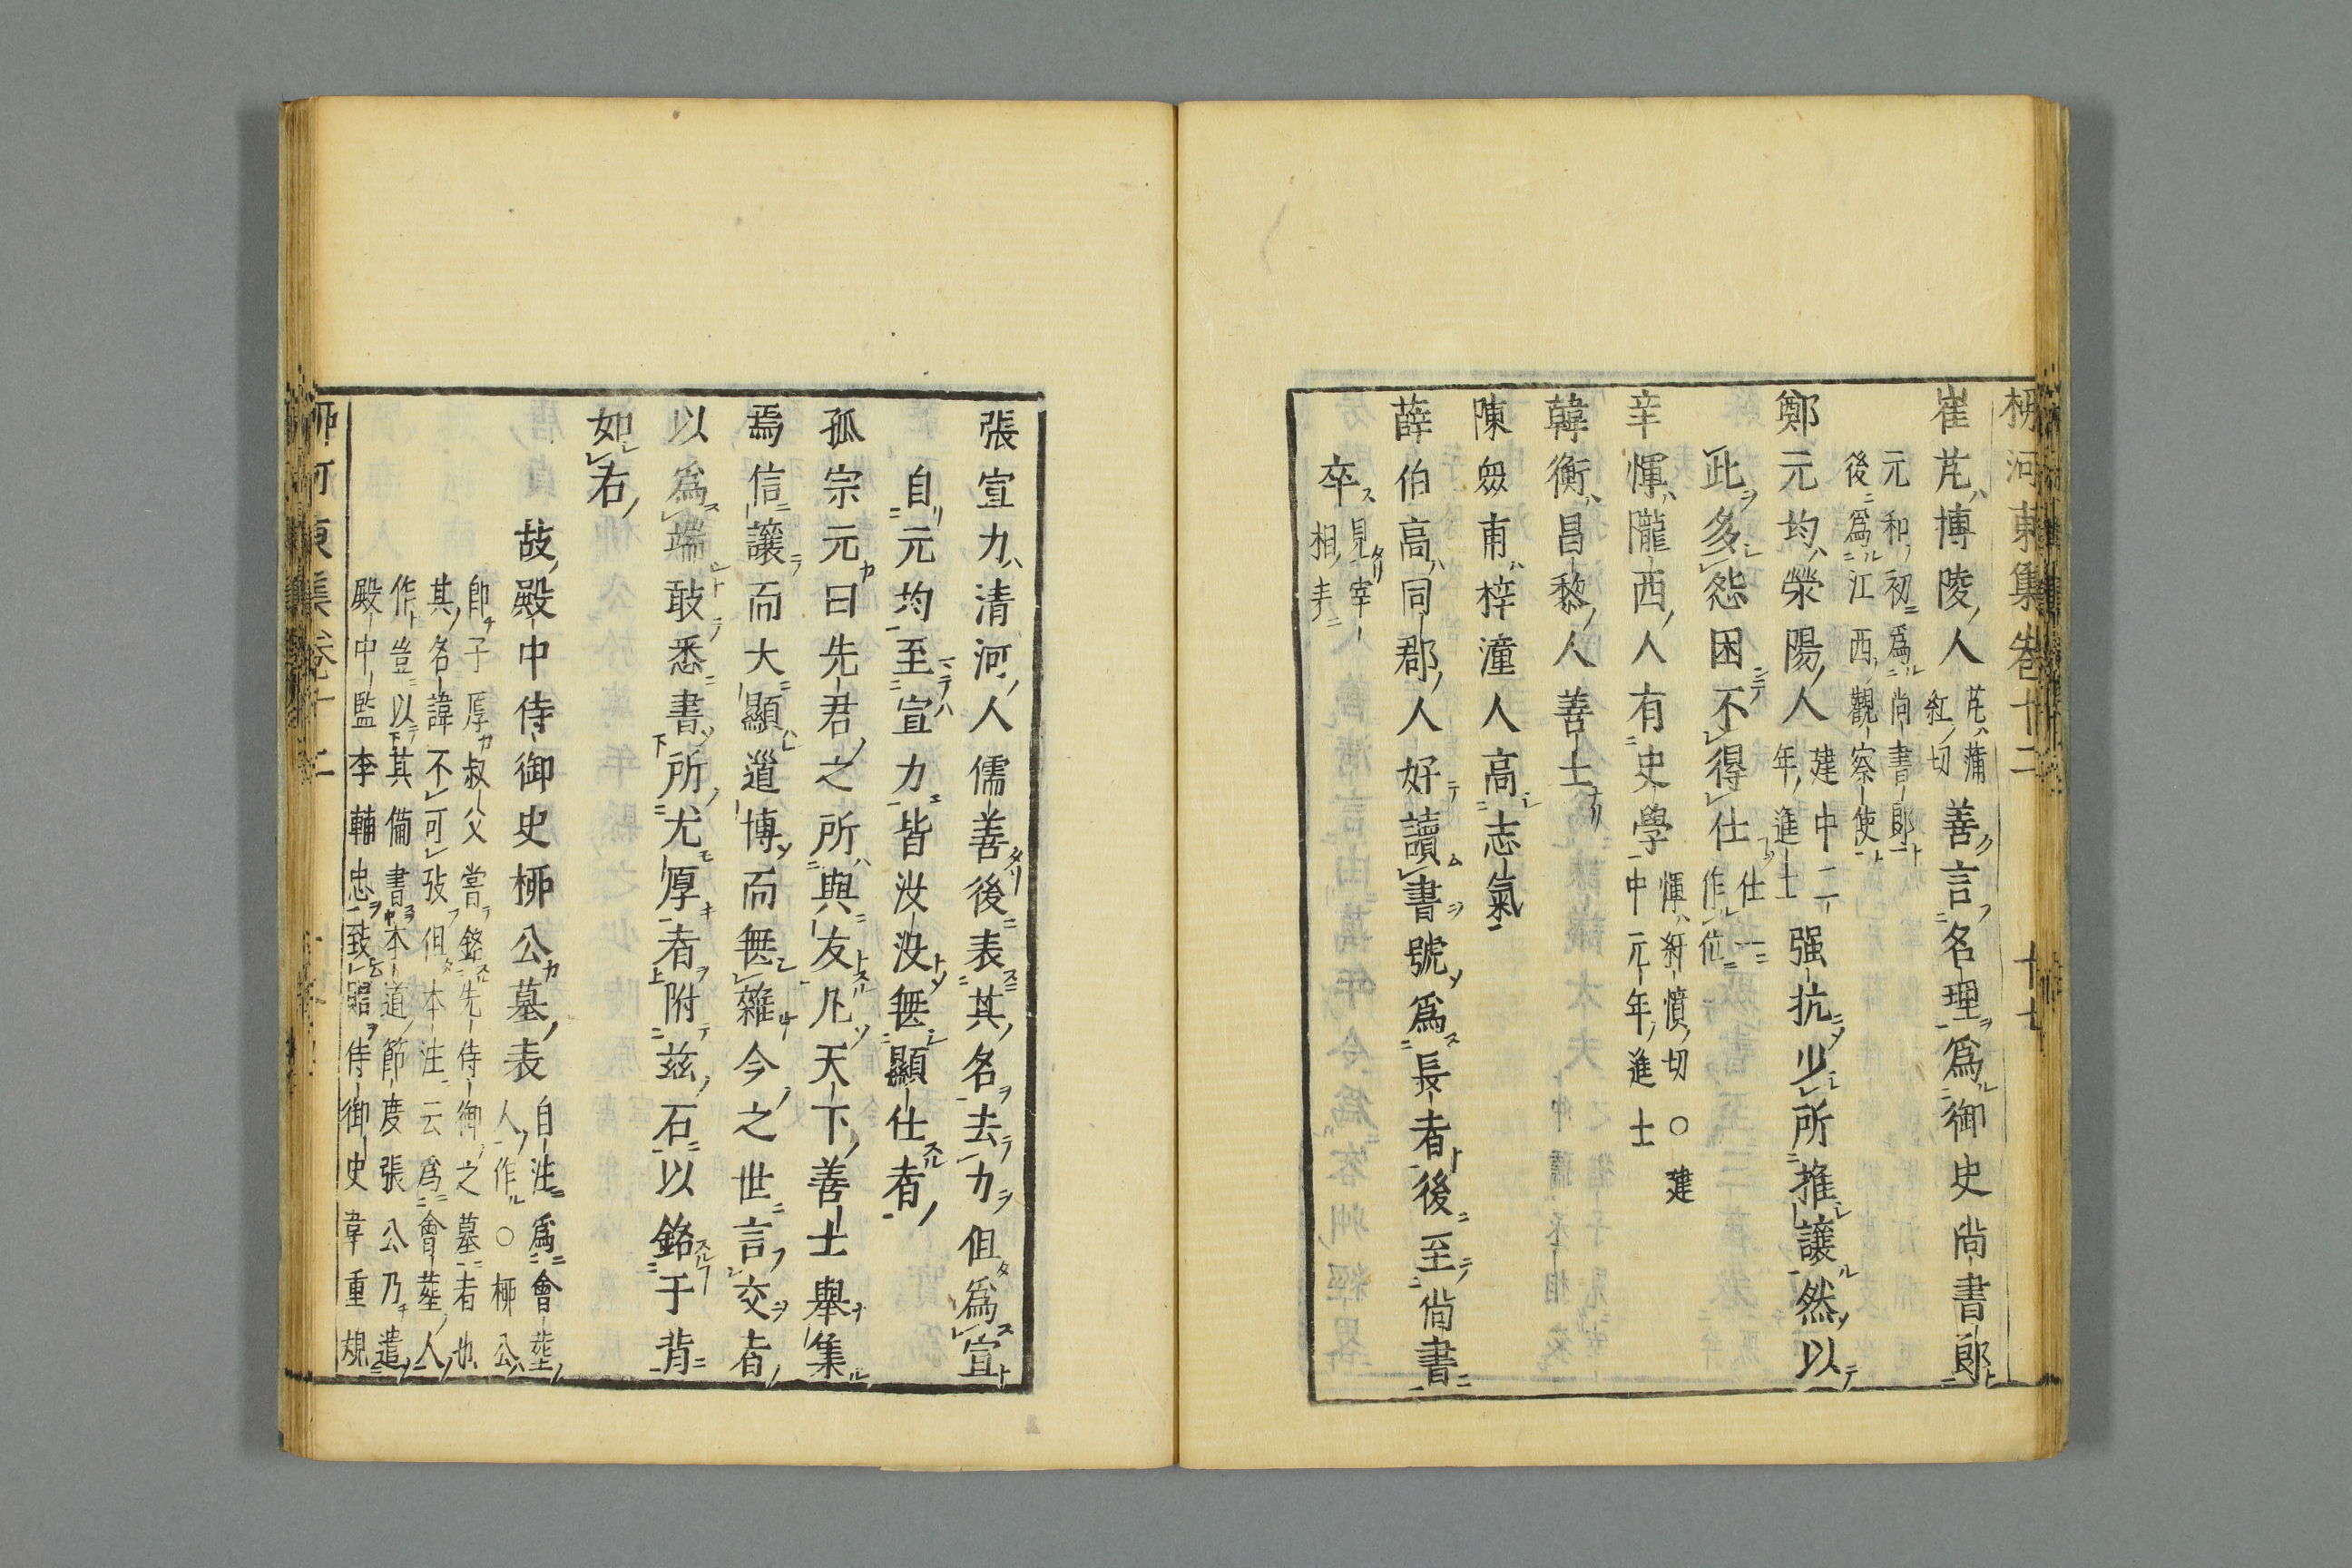 柳河東集卷十二 十七
崔芃博陵人
芃蒲
紅切
善言名理爲御史尚書郎
元和初爲尚書郎
後爲江西觀察使
鄭元均滎陽人
建中二
年進士
强抗少所推讓然以
此多怨困不得仕
仕一
作位
辛惲隴西人有史學
惲紆憤切○建
中元年進士
韓衡昌黎人善士
陳衆甫梓潼人高志氣
薛伯高同郡人好讀書號爲長者後至尚書
卒
見宰
相表
張宣力清河人儒善後表其名去力但爲宣
自元均至宣力皆汝汝無顯仕者
孤宗元曰先君之所與友凡天下善士舉集
焉信讓而大顯道博而無雜今之世言交者
以爲端敢悉書所尤厚者附茲石以銘于背
如右
故殿中侍御史柳公墓表
自注爲會葬
人作○柳公
卽子厚叔父嘗銘先侍御之墓者也
其名諱不可攷但本注云爲會葬人
作豈以其備書本道節度張公乃遣
殿中監李輔忠致賵侍御史韋重規
柳河東集卷十二